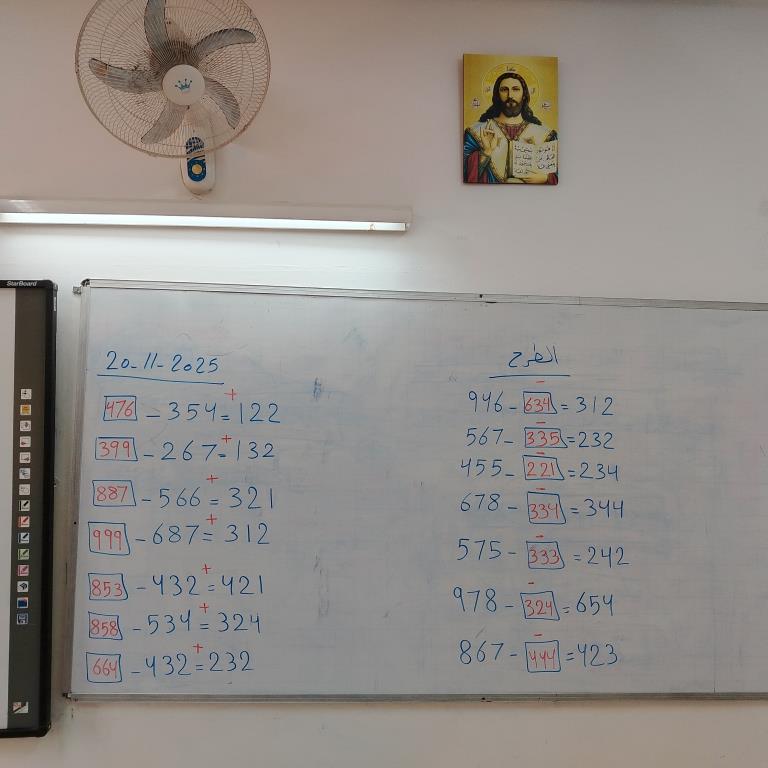 StarBoard
20-11-2025
476 - 354 = 122
+
399 - 267 = 132
+
887 - 566 = 321
+
999 - 687 = 312
+
853 - 432 = 421
+
858 - 534 = 324
+
664 - 432 = 232
+
الطرح
946 - 634 = 312
-
567 - 335 = 232
-
455 - 221 = 234
-
678 - 334 = 344
-
575 - 333 = 242
-
978 - 324 = 654
-
867 - 444 = 423
-